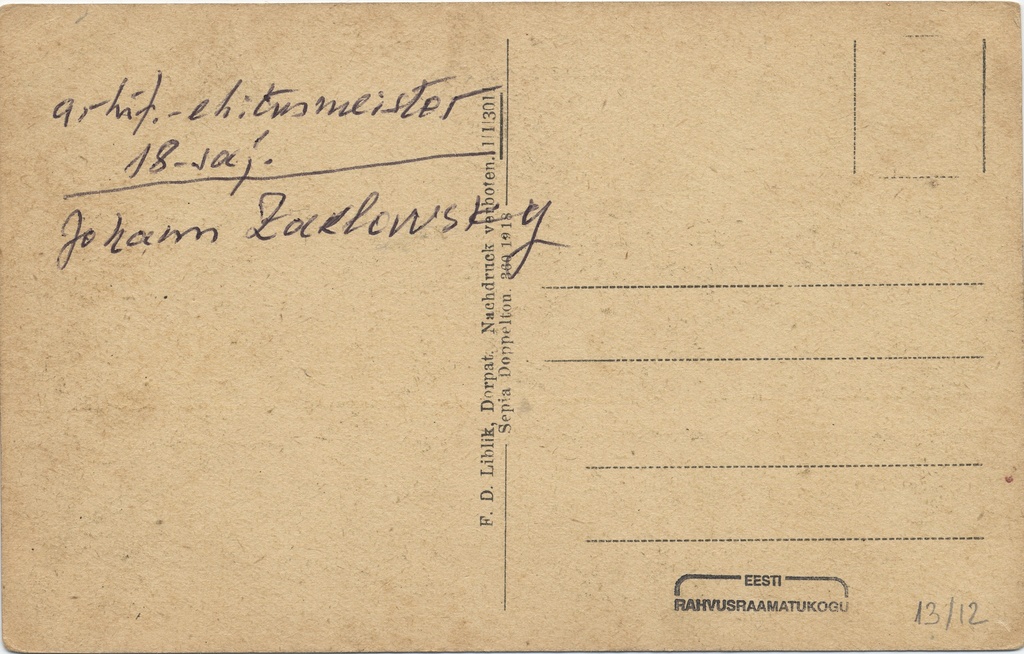 arhit.-ehitusmeister
18-saj.
Johann Zaklowsky
F. D. Liblik, Dorpat. Nachdruck verboten. 1|1|301
Sepia Doppelton. 360 1918
EESTI
RAHVUSRAAMATUKOGU
13/12